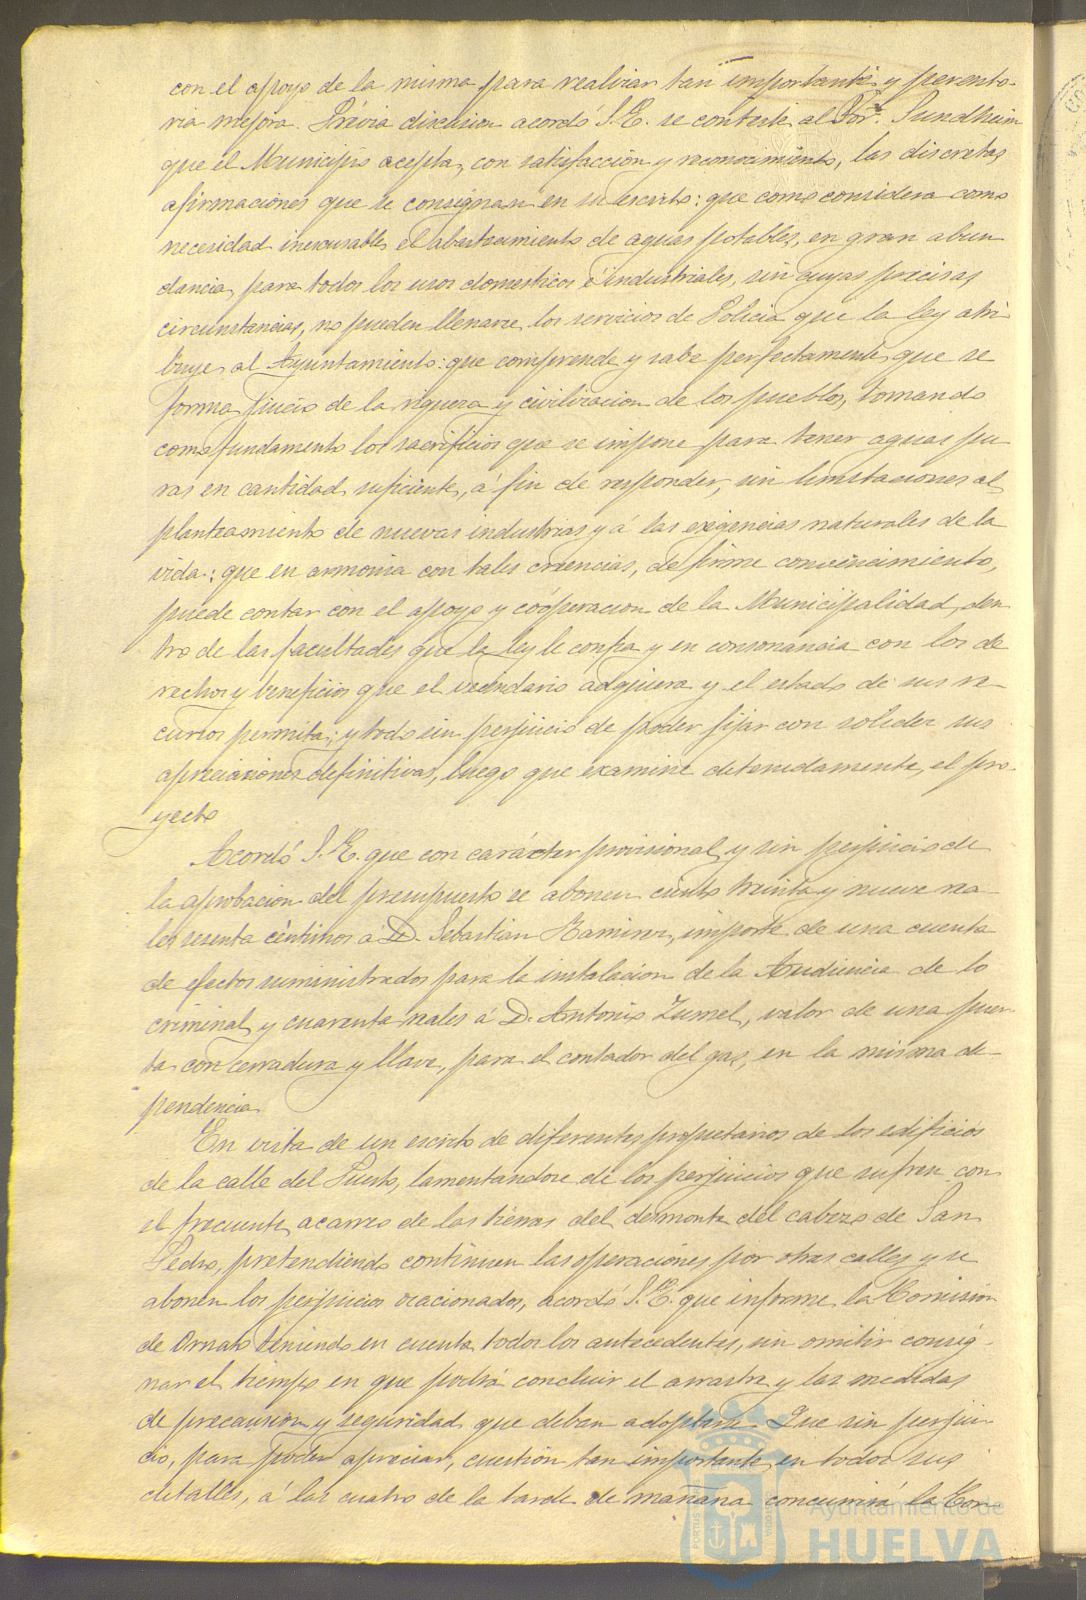 con el apoyo de la misma para realizar tan importante y perento-
ria mejora. Prévia discusion acordó S.E. se conteste al Sor. Sundheim
que el Municipio acepta, con satisfaccion y reconocimiento, las discretas
afirmaciones que se consignan en su escrito: que como considera como
necesidad inescusable el abastecimiento de aguas potables, en gran abun
dancia, para todos los usos domesticos é industriales, sin cuyas precisas
circunstancias, no pueden llenarse los servicios de Policia que la ley atri
buye al Ayuntamiento: que comprende y sabe perfectamente que se
forma juicio de la riqueza y civilizacion de los pueblos, tomando
como fundamento los sacrificios que se impone para tener aguas pu
ras en cantidad suficiente, á fin de responder, sin limitaciones al
planteamiento de nuevas industrias y á las exigencias naturales de la
vida: que en armonia con tales creencias, de firme convencimiento,
puede contar con el apoyo y coóperacion de la Municipalidad, den
tro de las facultades que la ley le confia y en consonancia con los de
rechos y beneficios que el vecindario adquiera y el estado de sus re
cursos permita; y todo sin perjuicio de poder fijar con solidez sus
apreciaciones definitivas, luego que examine detenidamente, el pro-
yecto
Acordó S.E. que con carácter provisional y sin perjuicio de
la aprobacion del presupuesto se abonen ciento treinta y nueve rea-
les sesenta céntimos á D. Sebastian Ramirez, importe de una cuenta
de efectos suministrados para la instalacion de la Audiencia de lo
criminal y cuarenta reales á D. Antonio Zumel, valor de una puer-
ta con cerradura y llave, para el contador del gas, en la misma de-
pendencia
En vista de un escrito de diferentes propietarios de los edificios
de la calle del Puerto, lamentandose de los perjuicios que sufren con
el frecuente acarreo de las tierras del desmonte del cabezo de San
Pedro, pretendiendo continuen las operaciones por otras calles y se
abonen los perjuicios ocacionados, acordó S.E. que informe la Comision
de Ornato teniendo en cuenta todos los antecedentes, sin omitir consig-
nar el tiempo en que podrá concluir el arrastre y las medidas
de precaucion y seguridad que deban adoptarse. Que sin perjui-
cio, para poder apreciar, cuestion tan importante, en todos sus
detalles, á las cuatro de la tarde de mañana concurrirá la Com
Ayuntamiento de
HUELVA